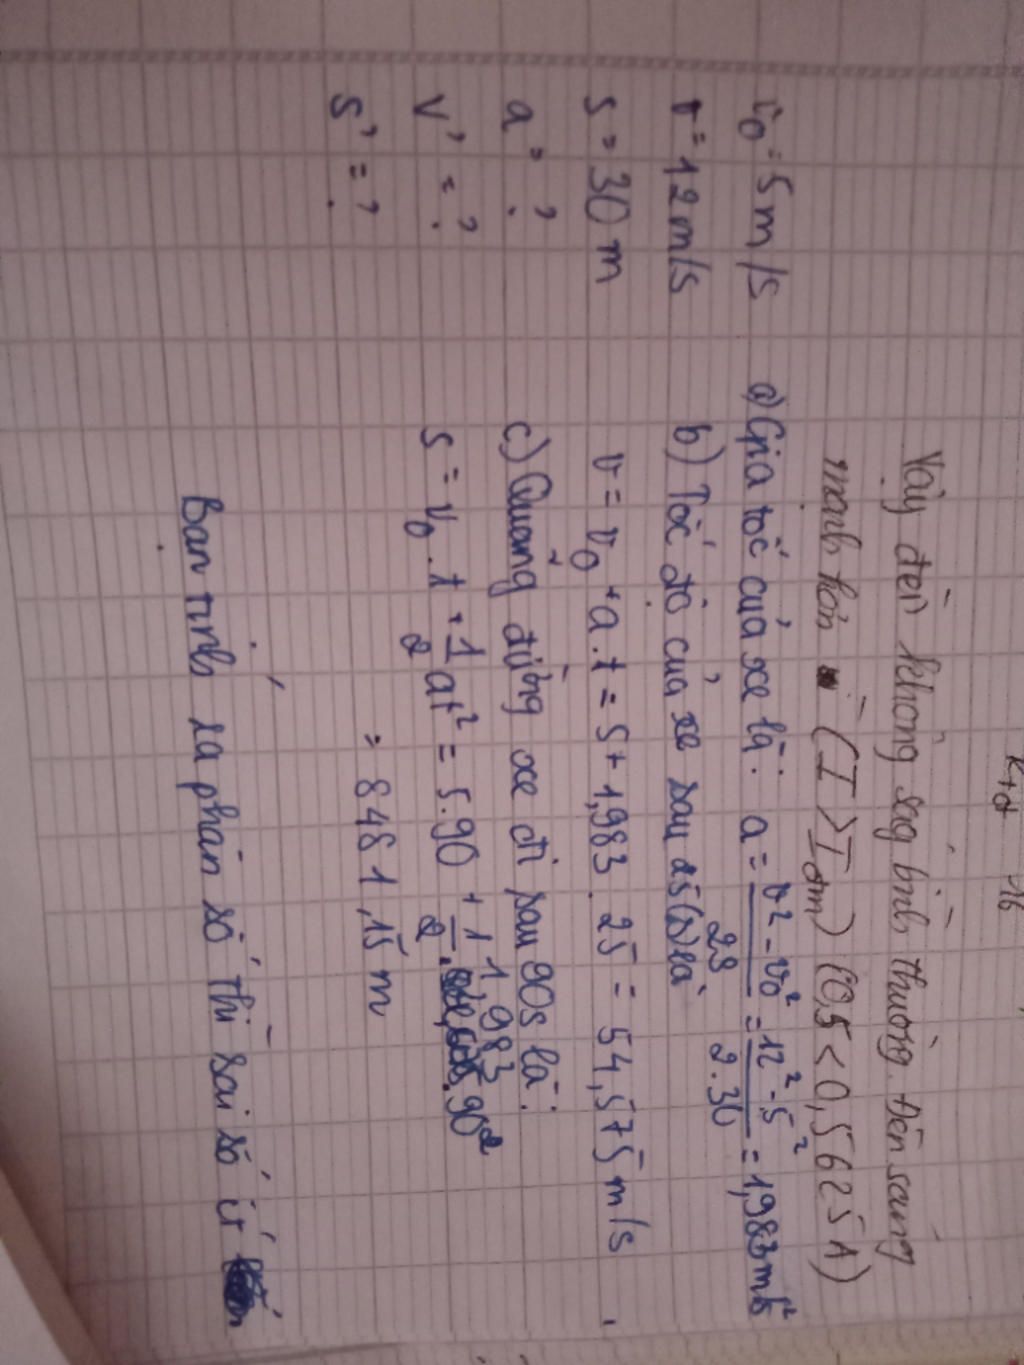 Vậy đèn không ság bình thường. Đèn sáng
mạnh hơn vì (I > Iđm) (0,5 < 0,5625A)
v0 = 5m/s
v = 12m/s
s = 30m
a = ?
v' = ?
s' = ?
a) Gia tốc của xe là: a = v² - v0² / 2S = 12² - 5² / 2.30 = 1,983 m/s²
b) Tốc độ của xe sau 25(s) là
v = v0 + a.t = 5 + 1,983 . 25 = 54,575 m/s
c) Quãng đường xe đi sau 90s là:
s = v0.t + 1/2 at² = 5.90 + 1/2 . 1,983 . 90²
= 8481,15 m
Bạn tính ra phân số thì sai số ít